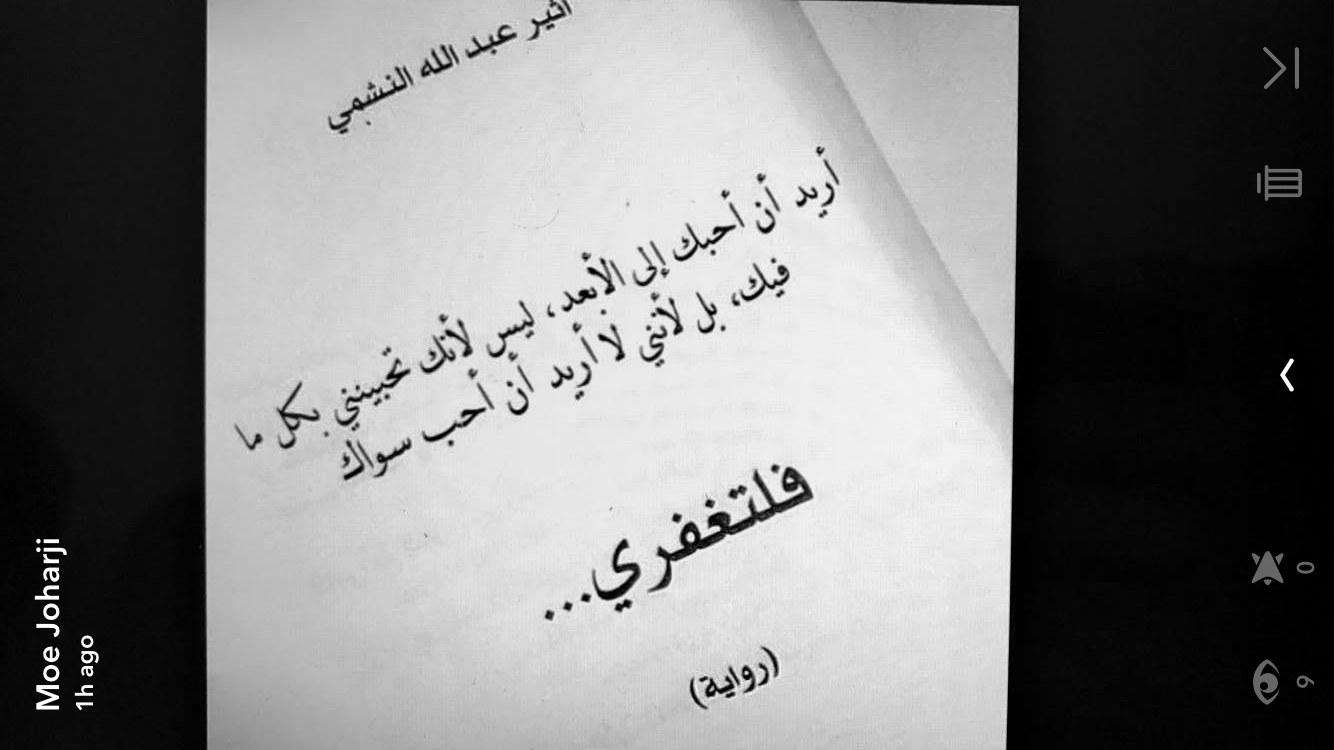 أثير عبد الله النشمي
أريد أن أحبك إلى الأبعد، ليس لأنك تحبينني بكل ما
فيك، بل لأنني لا أريد أن أحب سواك
فلتغفري...
(رواية)
Moe Joharji
1h ago
0
9